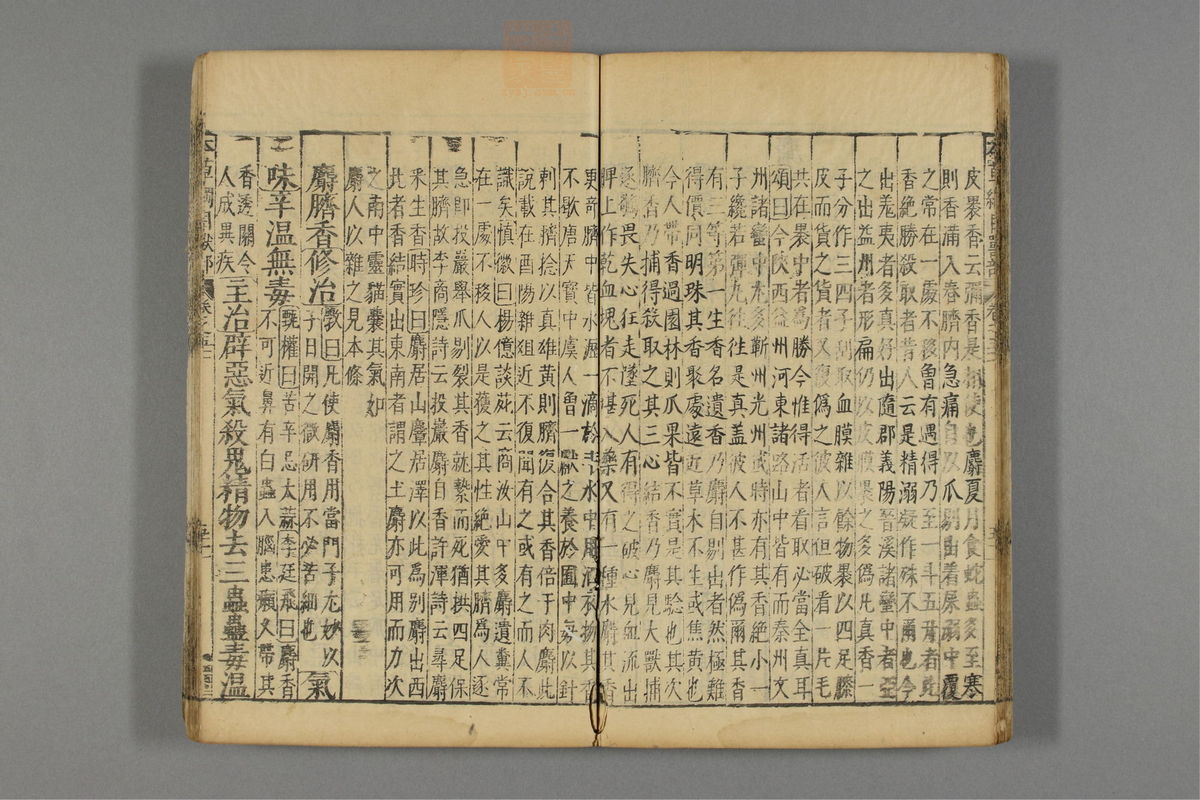 皮裹香云彌香是都使也麝夏月食蛇蟲多至寒
則香滿入春臍內急痛自以爪剔出着屎溺中覆
之常在一處不移曾有遇得乃至一斗五升者此
香絶勝殺取者昔人云是精溺凝作殊不爾也今
出羗夷者多真好出隨郡義陽晉溪諸蠻中者亞
之出益州者形扁仍以皮膜裹之多僞凡真香一
子分作三四子刮取血膜雜以餘物裹以四足膝
皮而貨之貨者又復僞之彼人言但破看一片毛
共在裹中者爲勝今惟得活者看取必當全真耳
頌曰今陝西益州河東諸路山中皆有而秦州文
州諸蠻中尤多蘄州光州或時亦有其香絶小一
子纔若彈丸往往是真蓋彼人不甚作僞爾其香
有三等第一生香名遺香乃麝自剔出者然極難
得價同明珠其香聚處遠近草木不生或焦黃也
今人帶香過園林則瓜果皆不實是其驗也其次
臍香乃捕得殺取之其三心結香乃麝見大獸捕
逐驚畏失心狂走墜死人有得之破心見血流出
脾上作乾血塊者不堪入藥又有一種水麝其香
更奇臍中皆水瀝一滴於斗水中用洒衣物其香
不歇唐天寶中虞人曾一獻之養於囿中每以針
刺其臍捻以真雄黃則臍復合其香倍于肉麝此
說載在酉陽雜俎近不復聞有之或有之而人不
識矣慎微曰楊億談苑云商汝山中多麝遺糞常
在一處不移人以是獲之其性絶愛其臍爲人逐
急卽投巖舉爪剔裂其香就縶而死猶拱四足保
其臍故李商隱詩云投巖麝自香許渾詩云尋麝
采生香時珍曰麝居山麞居澤以此爲別麝出西
北者香結實出東南者謂之土麝亦可用而力次
之南中靈貓囊其氣如
麝人以雜之見本條
麝臍香修治
斆曰凡使麝香用當門子尤妙以
子日開之微研用不必苦細也
氣
味辛溫無毒
甄權曰苦辛忌大蒜李廷飛曰麝香
不可近鼻有白蟲入腦患癩久帶其
香透關令
人成異疾
主治辟惡氣殺鬼精物去三蟲蠱毒溫